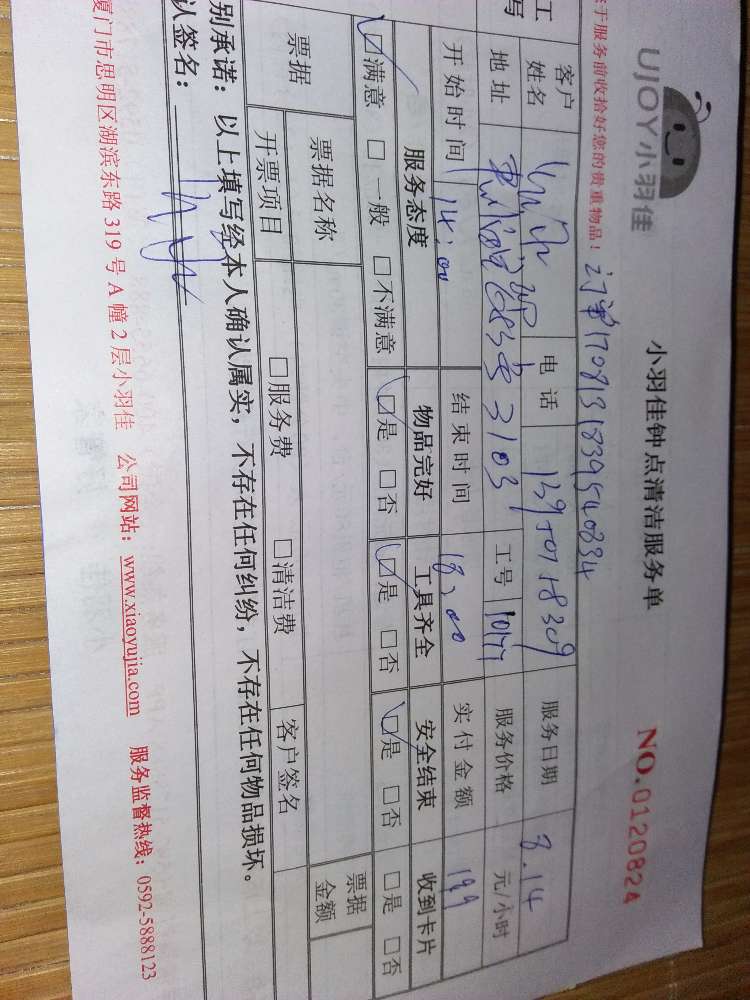 UJOY小羽佳
小羽佳钟点清洁服务单
NO.0120824
于服务前收拾好您的贵重物品!
订单17081318391540834
客户姓名 电话 服务日期 8.14
地址 3103 工号 服务价格 元/小时
开始时间 14:00 结束时间 18:00 实付金额 199
服务态度 物品完好 工具齐全 安全结束 收到卡片
☑满意 □一般 □不满意 ☑是 □否 ☑是 □否 ☑是 □否 □是 □否
票据 票据名称 票据金额
开票项目 □服务费 □清洁费 客户签名
别承诺:以上填写经本人确认属实,不存在任何纠纷,不存在任何物品损坏。
认签名:
厦门市思明区湖滨东路319号A幢2层小羽佳 公司网站:www.xiaoyujia.com 服务监督热线:0592-5888123